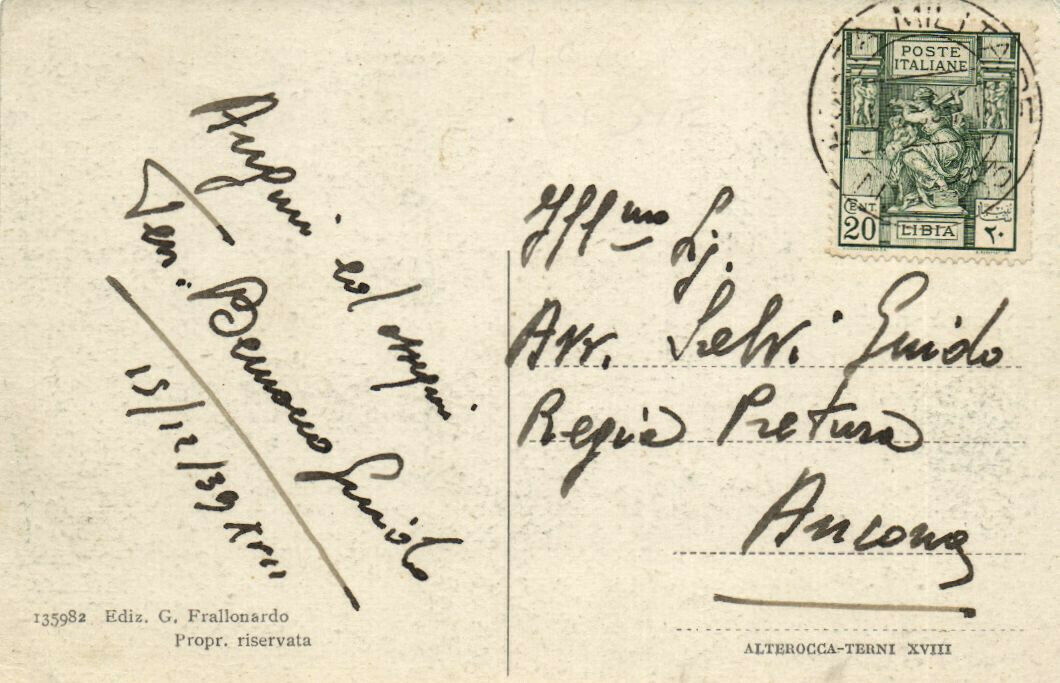 Auguri ed auguri
Ten. Bennano Guido
15/12/39 XVIII
135982 Ediz. G. Frallonardo
Propr. riservata
MILITARE
POSTE
ITALIANE
CENT.
20
LIBIA
٢٠
Ill.mo Sig.
Avv. Selvi Guido
Regia Pretura
Ancona
ALTEROCCA-TERNI XVIII